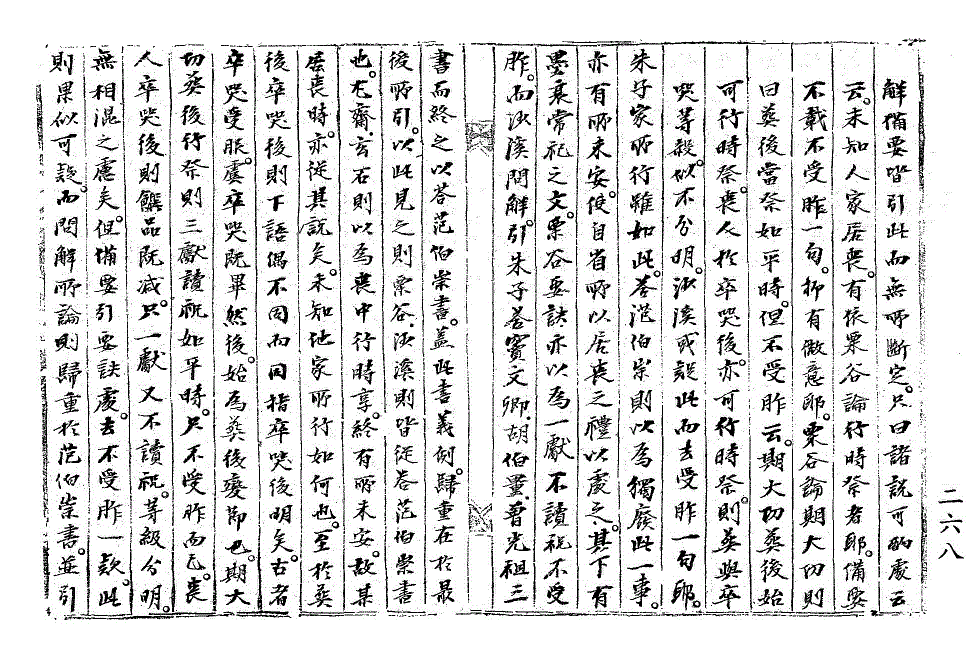 解備要皆引此而無所斷定。只曰諸說可酌處云
云。未知人家居喪。有依栗谷論行時祭者耶。備要
不載不受胙一句。抑有微意耶。栗谷論期大功則
曰葬後當祭如平時。但不受胙云。期大功葬後始
可行時祭。喪人於卒哭後。亦可行時祭。則葬與卒
哭等殺。似不分明。沙溪或疑此而去受胙一句耶。
朱子家所行雖如此。答范伯崇則以爲獨廢此一事。
亦有所未安。使自省所以居喪之禮以處之。其下有
墨衰常祀之文。栗谷要訣亦以爲一獻不讀祝不受
胙。而沙溪問解。引朱子答竇文卿,胡伯量,曾光祖三
書而終之以答范伯崇書。蓋此書義例歸重在於最
後所引。以此見之則栗谷,沙溪則皆從答范伯崇書
也。尤齋,玄石則以爲喪中行時享。終有所未安。故某
居喪時。亦從其說矣。未知他家所行如何也。至於葬
後卒哭後則下語偶不同而同指卒哭後明矣。古者
卒哭受服。虞卒哭旣畢然後。始爲葬後變節也。期大
功葬後行祭則三獻讀祝如平時。只不受胙而已。喪
人卒哭後則饌品旣减。只一獻又不讀祝。等級分明。
無相混之慮矣。但備要引要訣處。去不受胙一款。此
則果似可疑。而問解所論則歸重於范伯崇書。並引
二六八